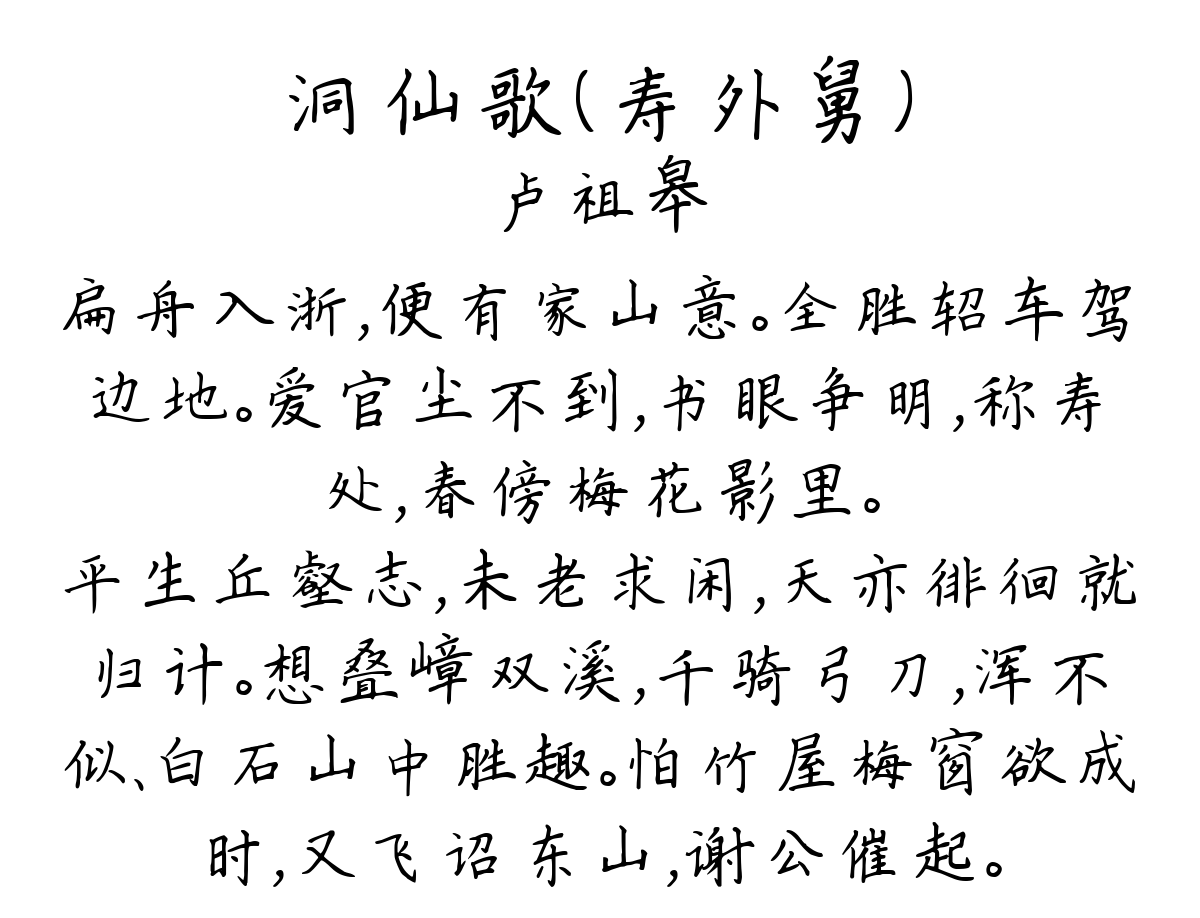 洞仙歌(寿外舅)
卢祖皋
扁舟入浙,便有家山意。全胜轺车驾
边地。爱官尘不到,书眼争明,称寿
处,春傍梅花影里。
平生丘壑志,未老求闲,天亦徘徊就
归计。想叠嶂双溪,千骑弓刀,浑不
似、白石山中胜趣。怕竹屋梅窗欲成
时,又飞诏东山,谢公催起。